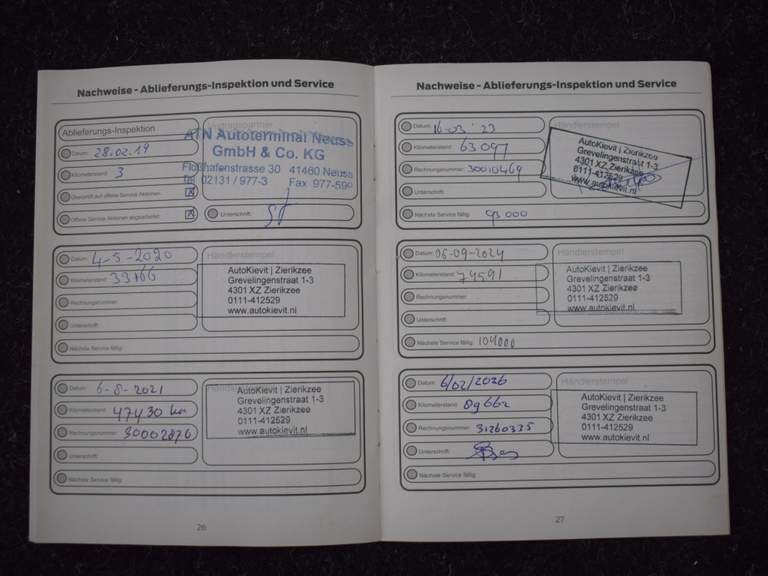 Nachweise - Ablieferungs-Inspektion und Service
Ablieferungs-Inspektion
Datum: 28.02.19
Kilometerstand: 3
Überprüft auf offene Service Aktionen: X
Offene Service Aktionen abgearbeitet: X
ATN Autoterminal Neuss
GmbH & Co. KG
Floßhafenstrasse 30 41460 Neuss
Tel. 02131 / 977-3 Fax 977-590
Unterschrift:
Datum: 4-5-2020
Kilometerstand: 33166
Rechnungsnummer:
Unterschrift:
Nächste Service fällig:
Händlerstempel
AutoKievit | Zierikzee
Grevelingenstraat 1-3
4301 XZ Zierikzee
0111-412529
www.autokievit.nl
Datum: 6-8-2021
Kilometerstand: 47430 km
Rechnungsnummer: 30002826
Unterschrift:
Nächste Service fällig:
AutoKievit | Zierikzee
Grevelingenstraat 1-3
4301 XZ Zierikzee
0111-412529
www.autokievit.nl
26
Nachweise - Ablieferungs-Inspektion und Service
Datum: 16-03-'23
Kilometerstand: 63097
Rechnungsnummer: 30010469
Unterschrift:
Nächste Service fällig: 93000
Händlerstempel
AutoKievit | Zierikzee
Grevelingenstraat 1-3
4301 XZ Zierikzee
0111-412529
www.autokievit.nl
Datum: 06-09-2024
Kilometerstand: 74591
Rechnungsnummer:
Unterschrift:
Nächste Service fällig: 104000
Händlerstempel
AutoKievit | Zierikzee
Grevelingenstraat 1-3
4301 XZ Zierikzee
0111-412529
www.autokievit.nl
Datum: 6/02/2026
Kilometerstand: 89662
Rechnungsnummer: 31260335
Unterschrift:
Nächste Service fällig:
Händlerstempel
AutoKievit | Zierikzee
Grevelingenstraat 1-3
4301 XZ Zierikzee
0111-412529
www.autokievit.nl
27